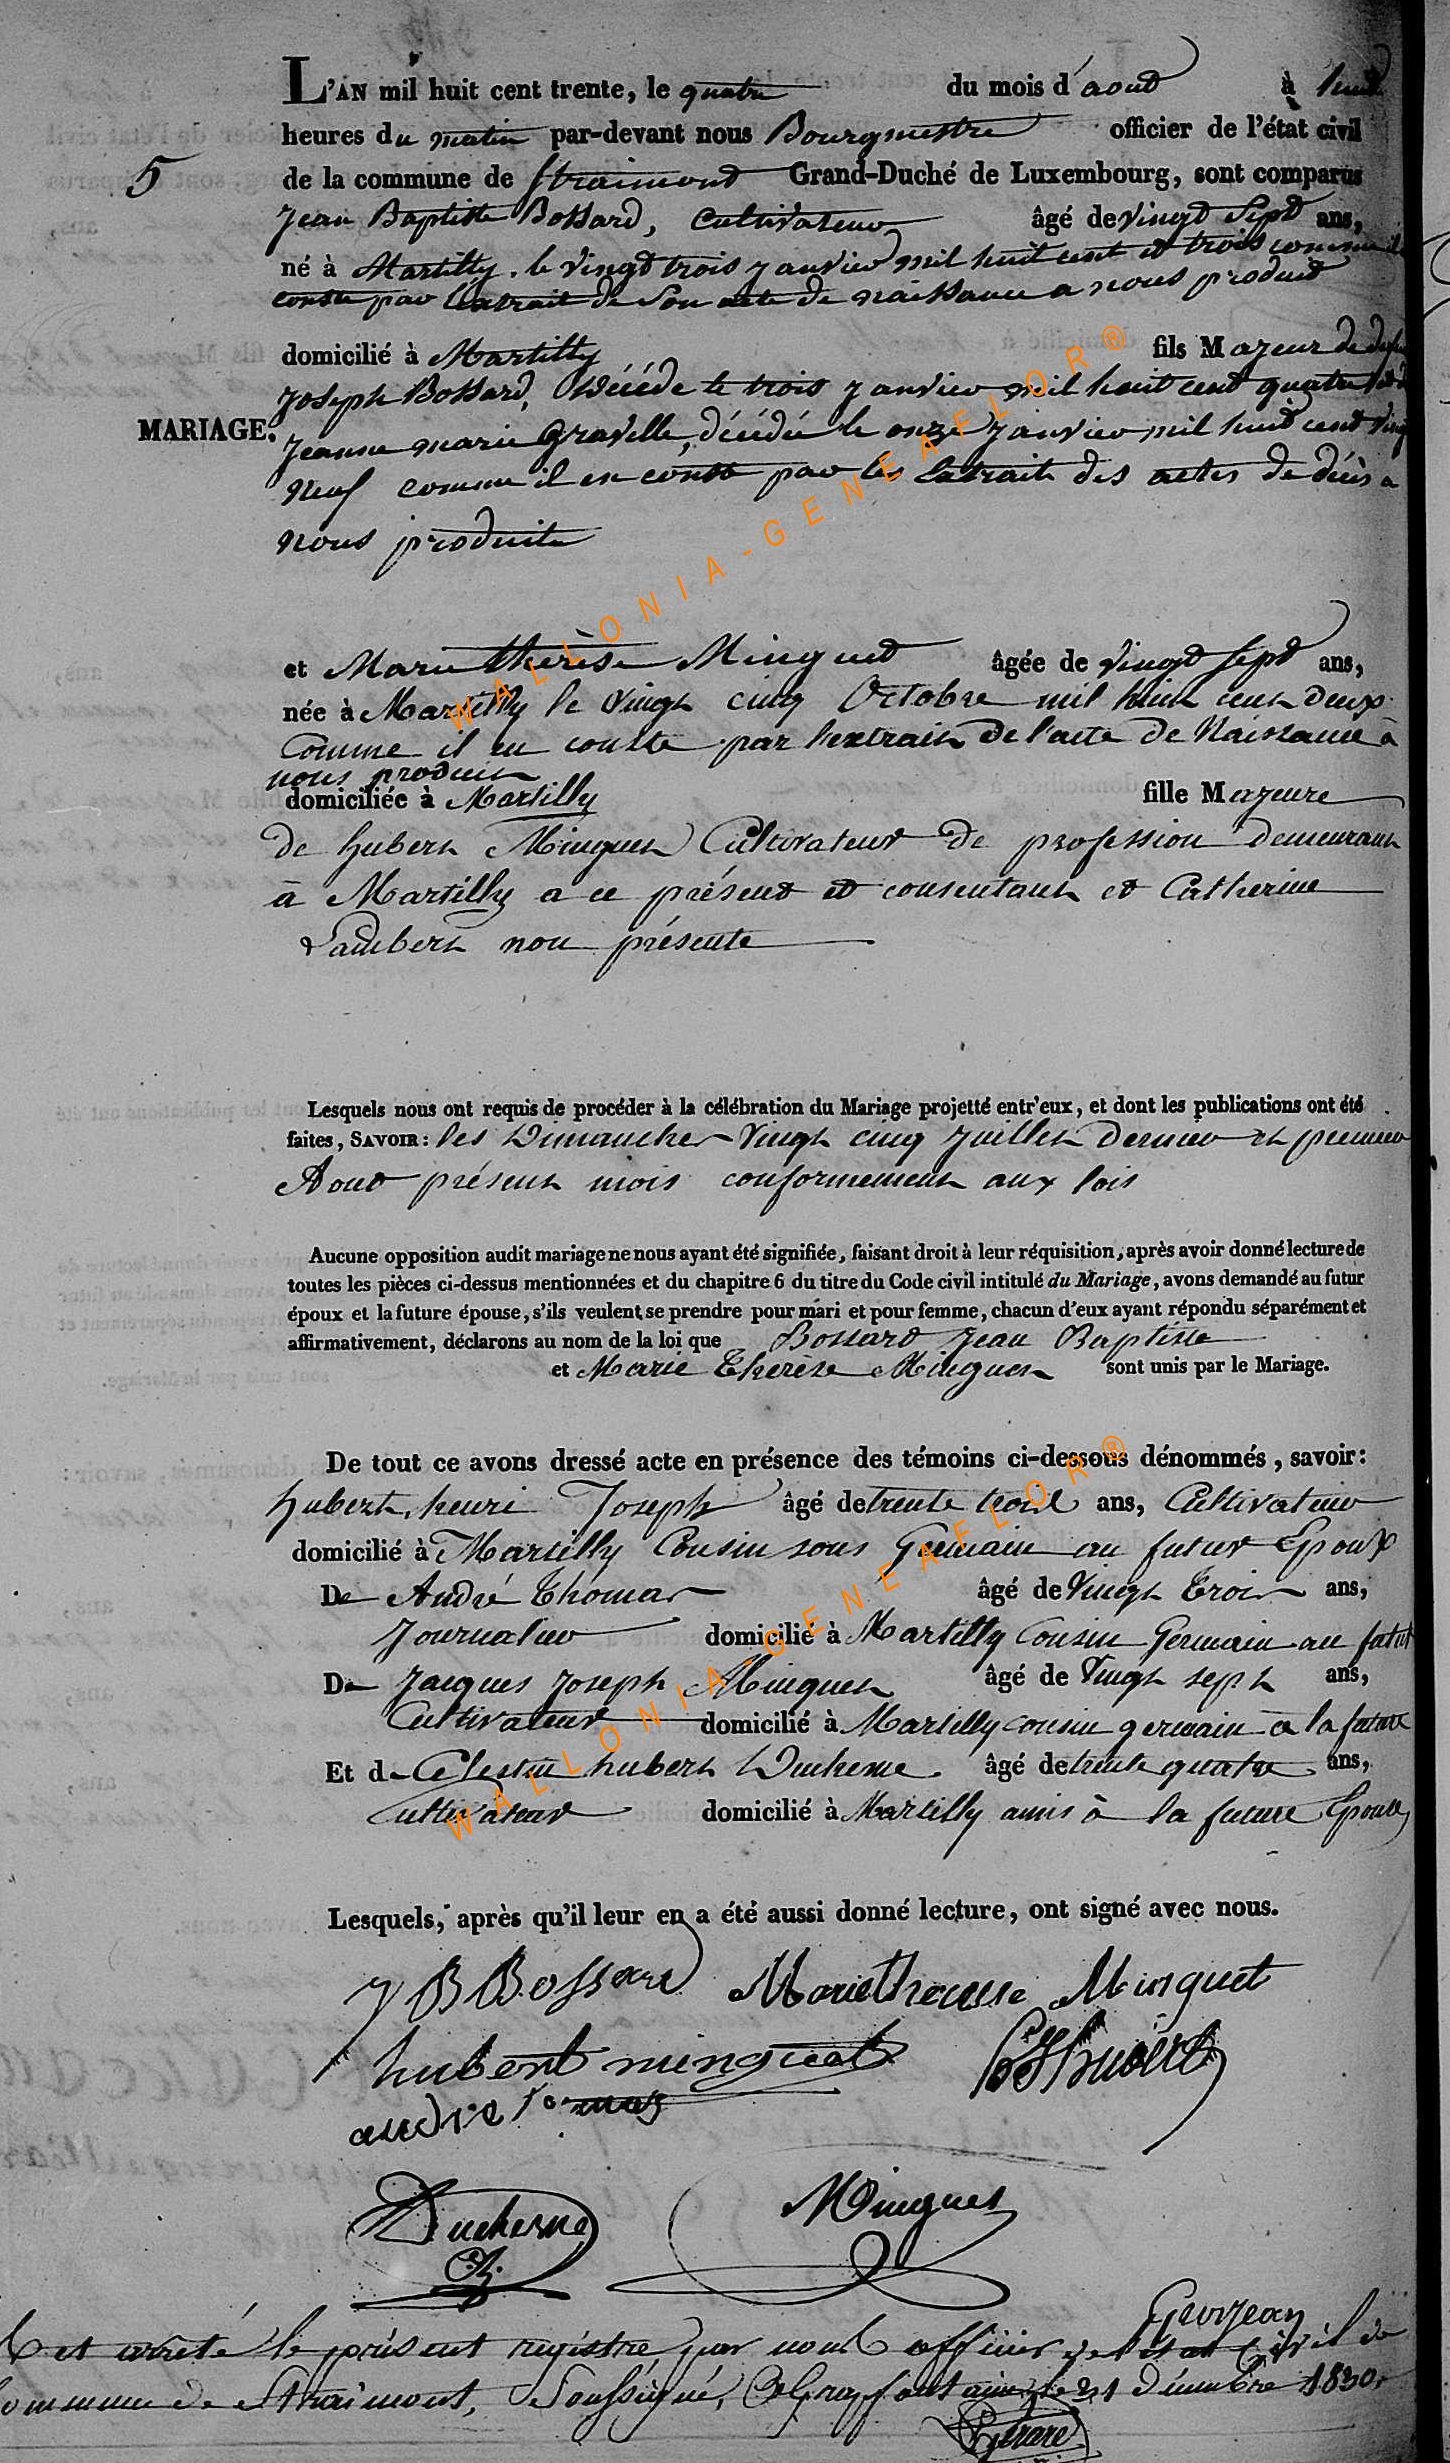 L'AN mil huit cent trente, le quatre du mois d'aout à huit
heures du matin par-devant nous Bourgmestre officier de l'état civil
5 de la commune de Straimont Grand-Duché de Luxembourg, sont comparus
Jean Baptiste Bossard, Cultivateur âgé de vingt sept ans,
né à Martilly, le vingt trois janvier mil huit cent et trois comme il
conste par l'extrait de son acte de naissance a nous produit
domicilié à Martilly fils Majeur de
Joseph Bossard, décédé le trois janvier mil huit cent quatre
MARIAGE. Jeanne marie Gravelle, décédée le onze janvier mil huit cent vingt
neuf comme il en conste par les Extraits des actes de décès a
nous produits
et Marie thérèse Minguet âgée de vingt sept ans,
née à Martilly le vingt cinq Octobre mil huit cent deux
Comme il en conste par l'extrait de l'acte de Naissance à
nous produit
domiciliée à Martilly fille Majeure
de hubert Minguet Cultivateur de profession demeurant
à Martilly a ce présent et consentant et Catherine
Lambert non présente
Lesquels nous ont requis de procéder à la célébration du Mariage projetté entr'eux, et dont les publications ont été
faites, SAVOIR : les Dimanches Vingt cinq Juillet dernier et premier
Aout présent mois conformement aux lois
Aucune opposition audit mariage ne nous ayant été signifiée, faisant droit à leur réquisition, après avoir donné lecture de
toutes les pièces ci-dessus mentionnées et du chapitre 6 du titre du Code civil intitulé du Mariage, avons demandé au futur
époux et la future épouse, s'ils veulent se prendre pour mari et pour femme, chacun d'eux ayant répondu séparément et
affirmativement, déclarons au nom de la loi que Bossard Jean Baptiste
et Marie Thérèse Minguet sont unis par le Mariage.
De tout ce avons dressé acte en présence des témoins ci-dessous dénommés, savoir :
hubert, henri Joseph âgé de trente trois ans, Cultivateur
domicilié à Martilly Cousin sous Germain au futur Epoux
De André Thomas âgé de Vingt Trois ans,
Journalier domicilié à Martilly Cousin Germain au futur
De Jacques Joseph Minguet âgé de Vingt sept ans,
Cultivateur domicilié à Martilly cousin germain a la future
Et de Celestin hubert Duchesne âgé de trente quatre ans,
Cultivateur domicilié à Martilly amis à la future Epouse
Lesquels, après qu'il leur en a été aussi donné lecture, ont signé avec nous.
J B Bossard Marie Theresse Minguet
hubert minguet hubert
andré tomas
Duchesne Minguet
Grosjean
et arreté le présent registre par nous officier de l'état Civil de
commune de Straimont, Soussigné, a Grapfontaine, le 31 décembre 1830.
Gérard
WALLONIA-GENEAFLOR®
WALLONIA-GENEAFLOR®